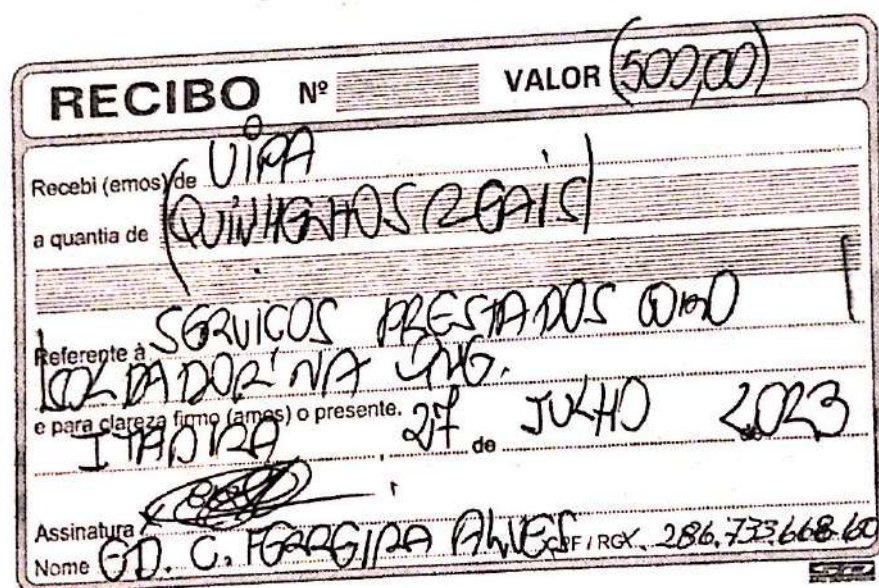 RECIBO Nº VALOR (500,00)
Recebi (emos) de UIPA
a quantia de (QUINHENTOS REAIS)
Referente à SERVICOS PRESTADOS COMO
SOLDADOR NA ONG.
e para clareza firmo (amos) o presente.
ITABIRA, 27 de JULHO de 2.023
Assinatura
Nome ED. C. FERREIRA ALVES CPF / RG X. 286.733.668.60